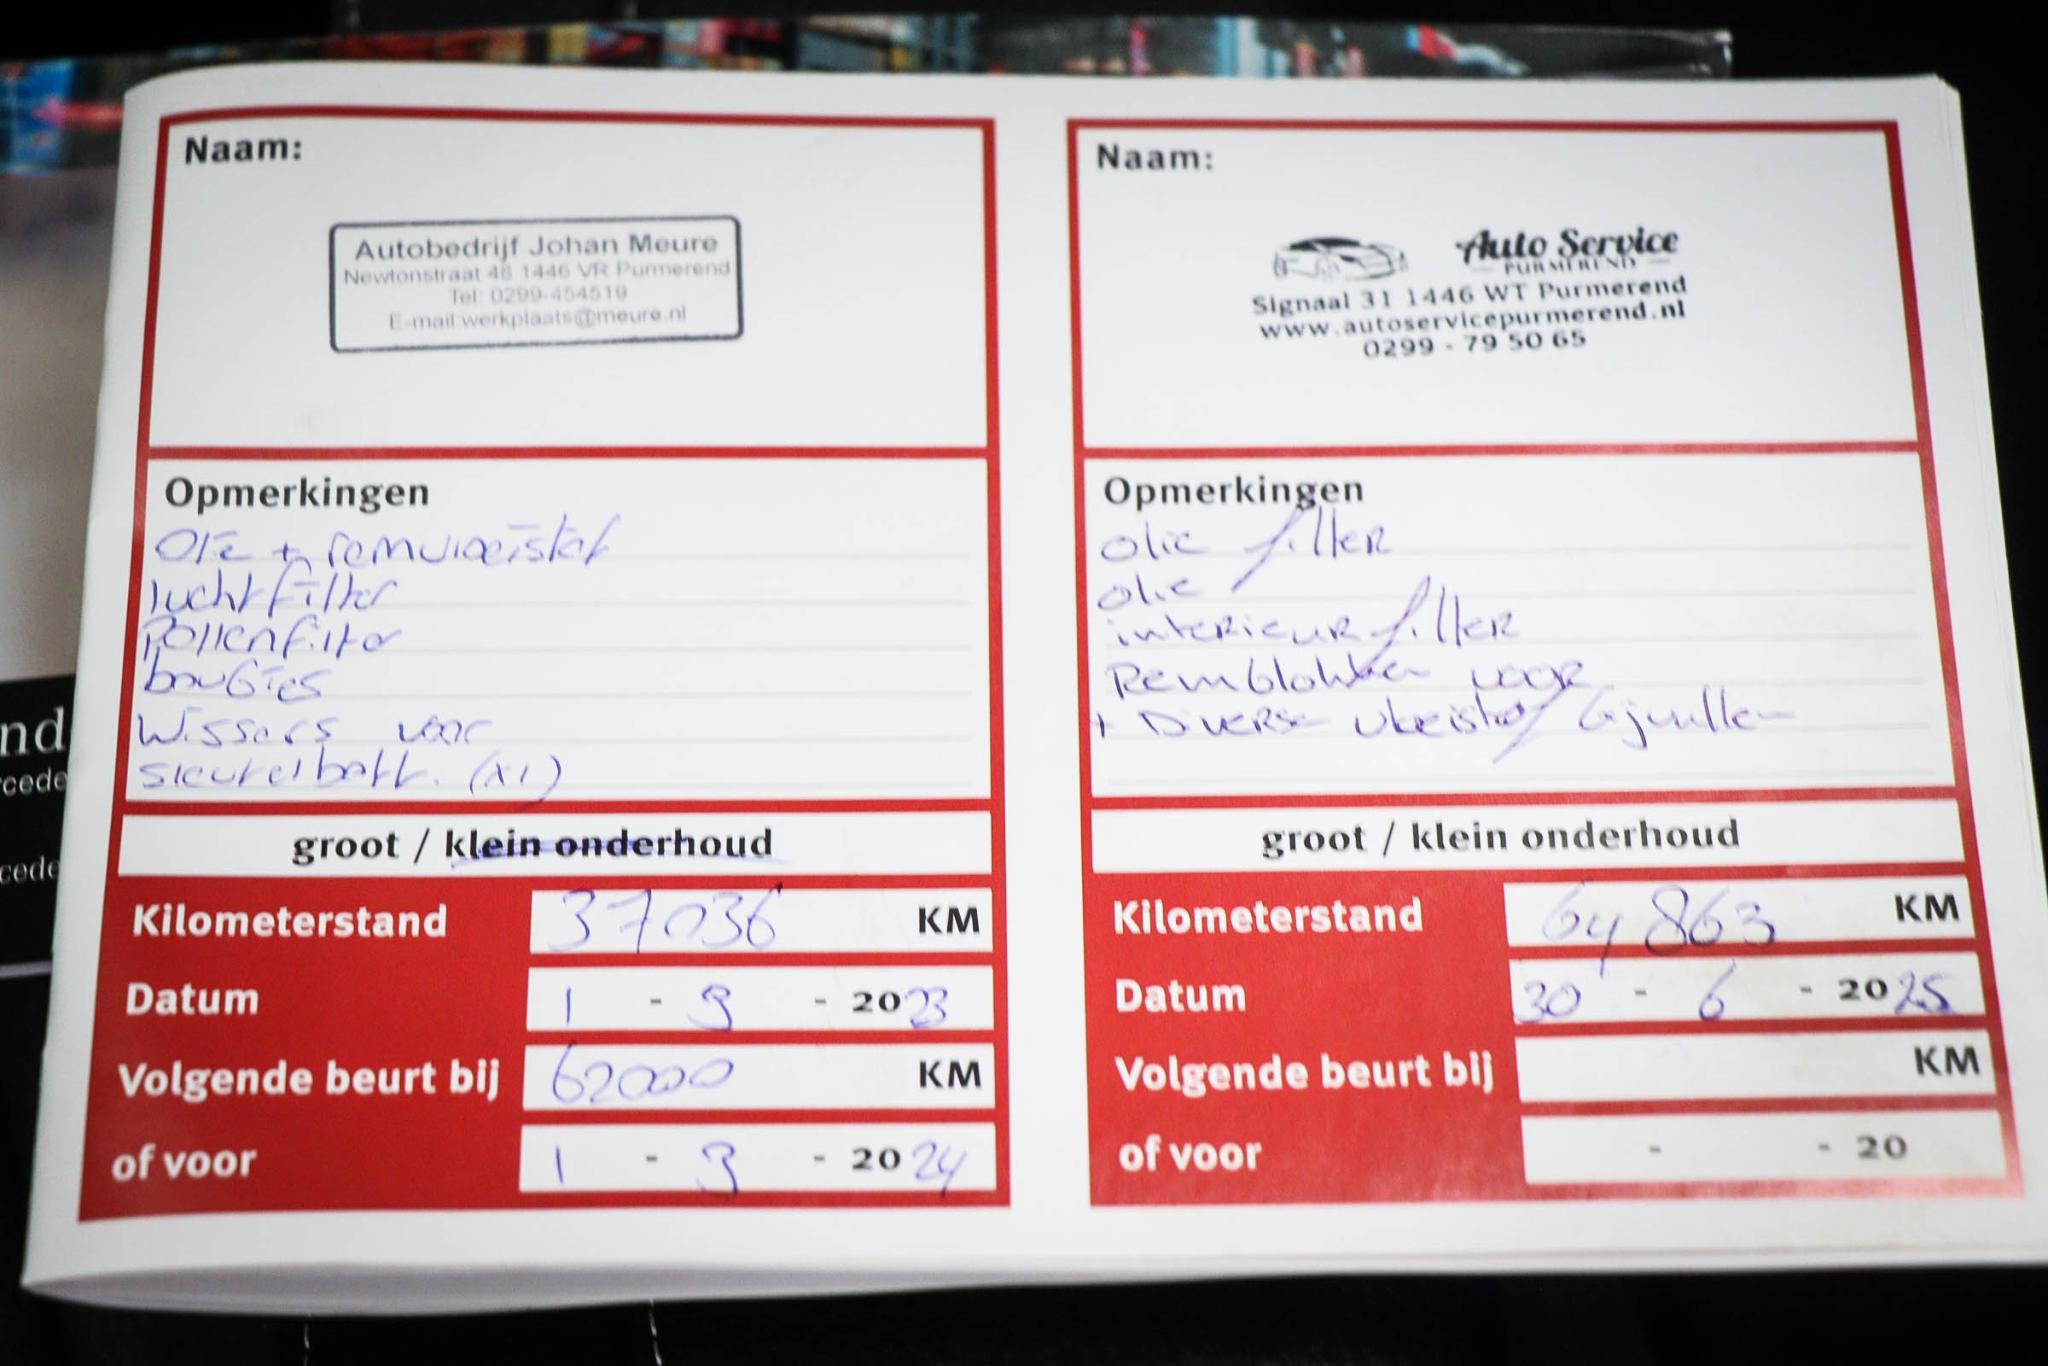 Naam:
Autobedrijf Johan Meure
Newtonstraat 48 1446 VR Purmerend
Tel: 0299-454519
E-mail:werkplaats@meure.nl
Opmerkingen
Olie + remvloeistof
luchtfilter
Pollenfilter
bougies
Wissers voor
Sleutelbatt. (x1)
groot / klein onderhoud
Kilometerstand 37036 KM
Datum 1 - 9 - 2023
Volgende beurt bij 62000 KM
of voor 1 - 9 - 2024
Naam:
Auto Service
PURMEREND
Signaal 31 1446 WT Purmerend
www.autoservicepurmerend.nl
0299 - 79 50 65
Opmerkingen
olie filter
olie
interieur filter
Remblokken voor
+ Diverse vloeistof bijvullen
groot / klein onderhoud
Kilometerstand 64863 KM
Datum 30 - 6 - 2025
Volgende beurt bij KM
of voor - - 20
nd
cede
cede